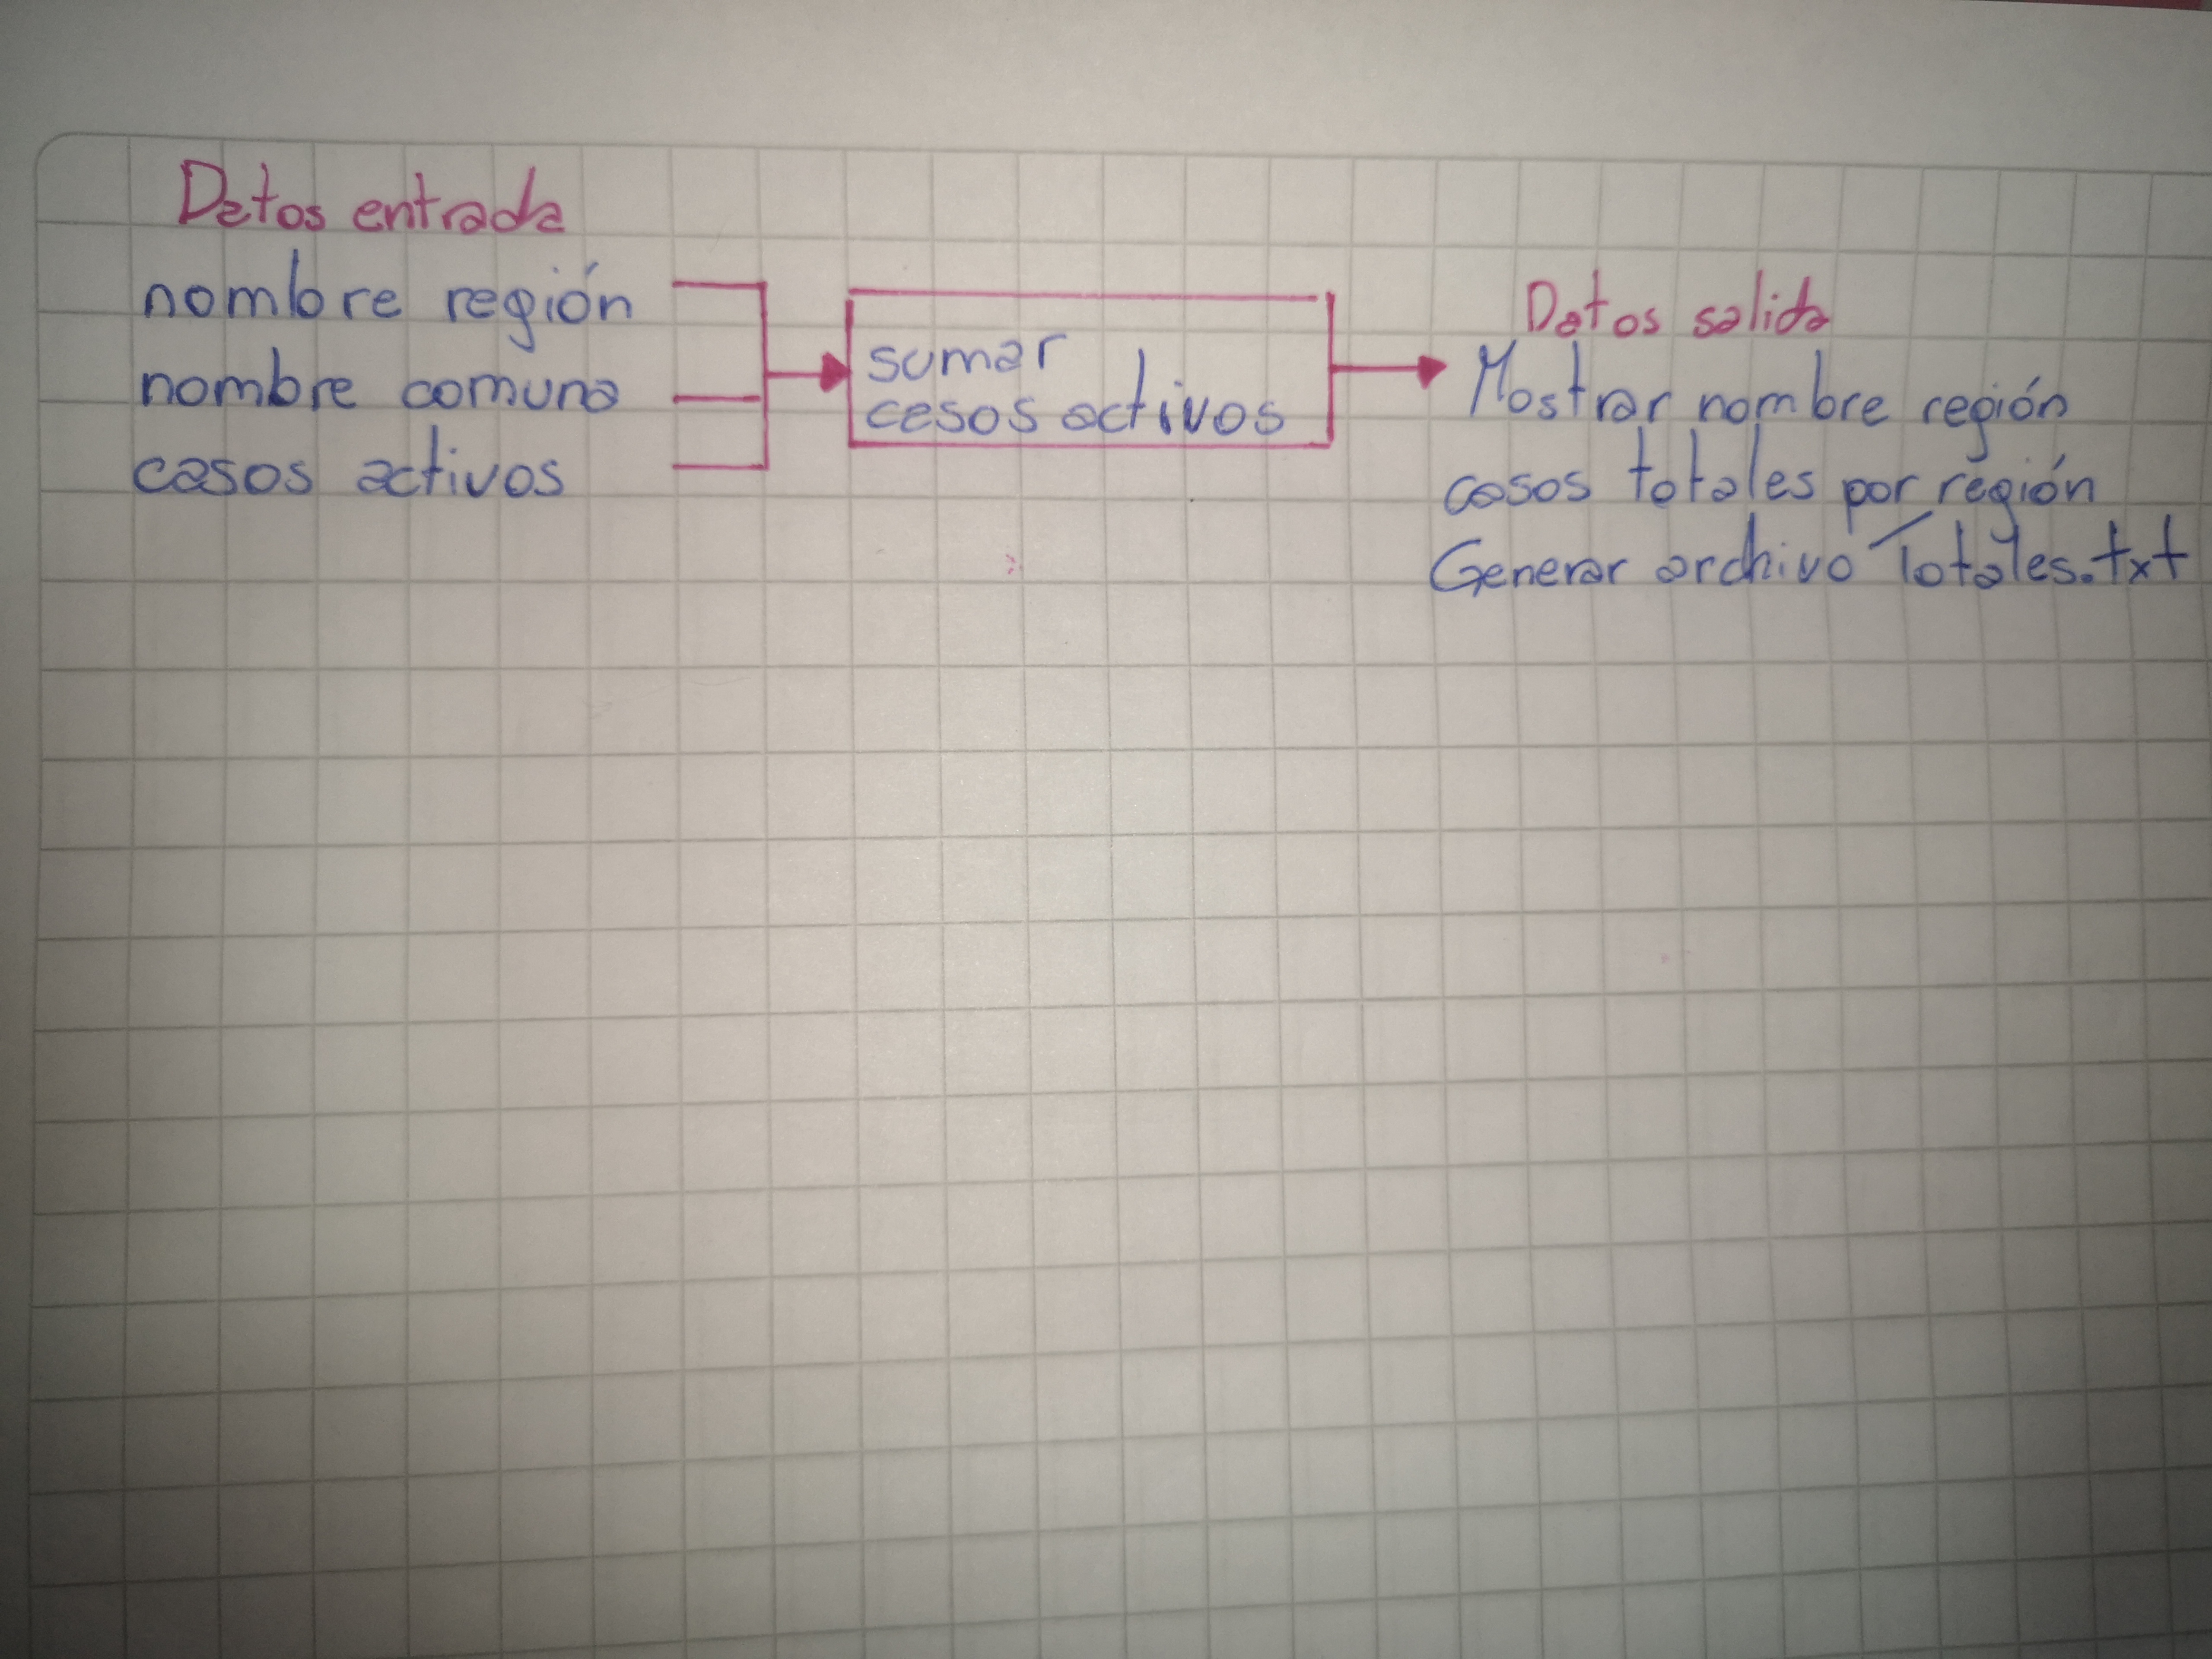 Datos entrada
nombre región
nombre comuna
casos activos
sumar
casos activos
Datos salida
Mostrar nombre región
casos totales por región
Generar archivo Totales.txt